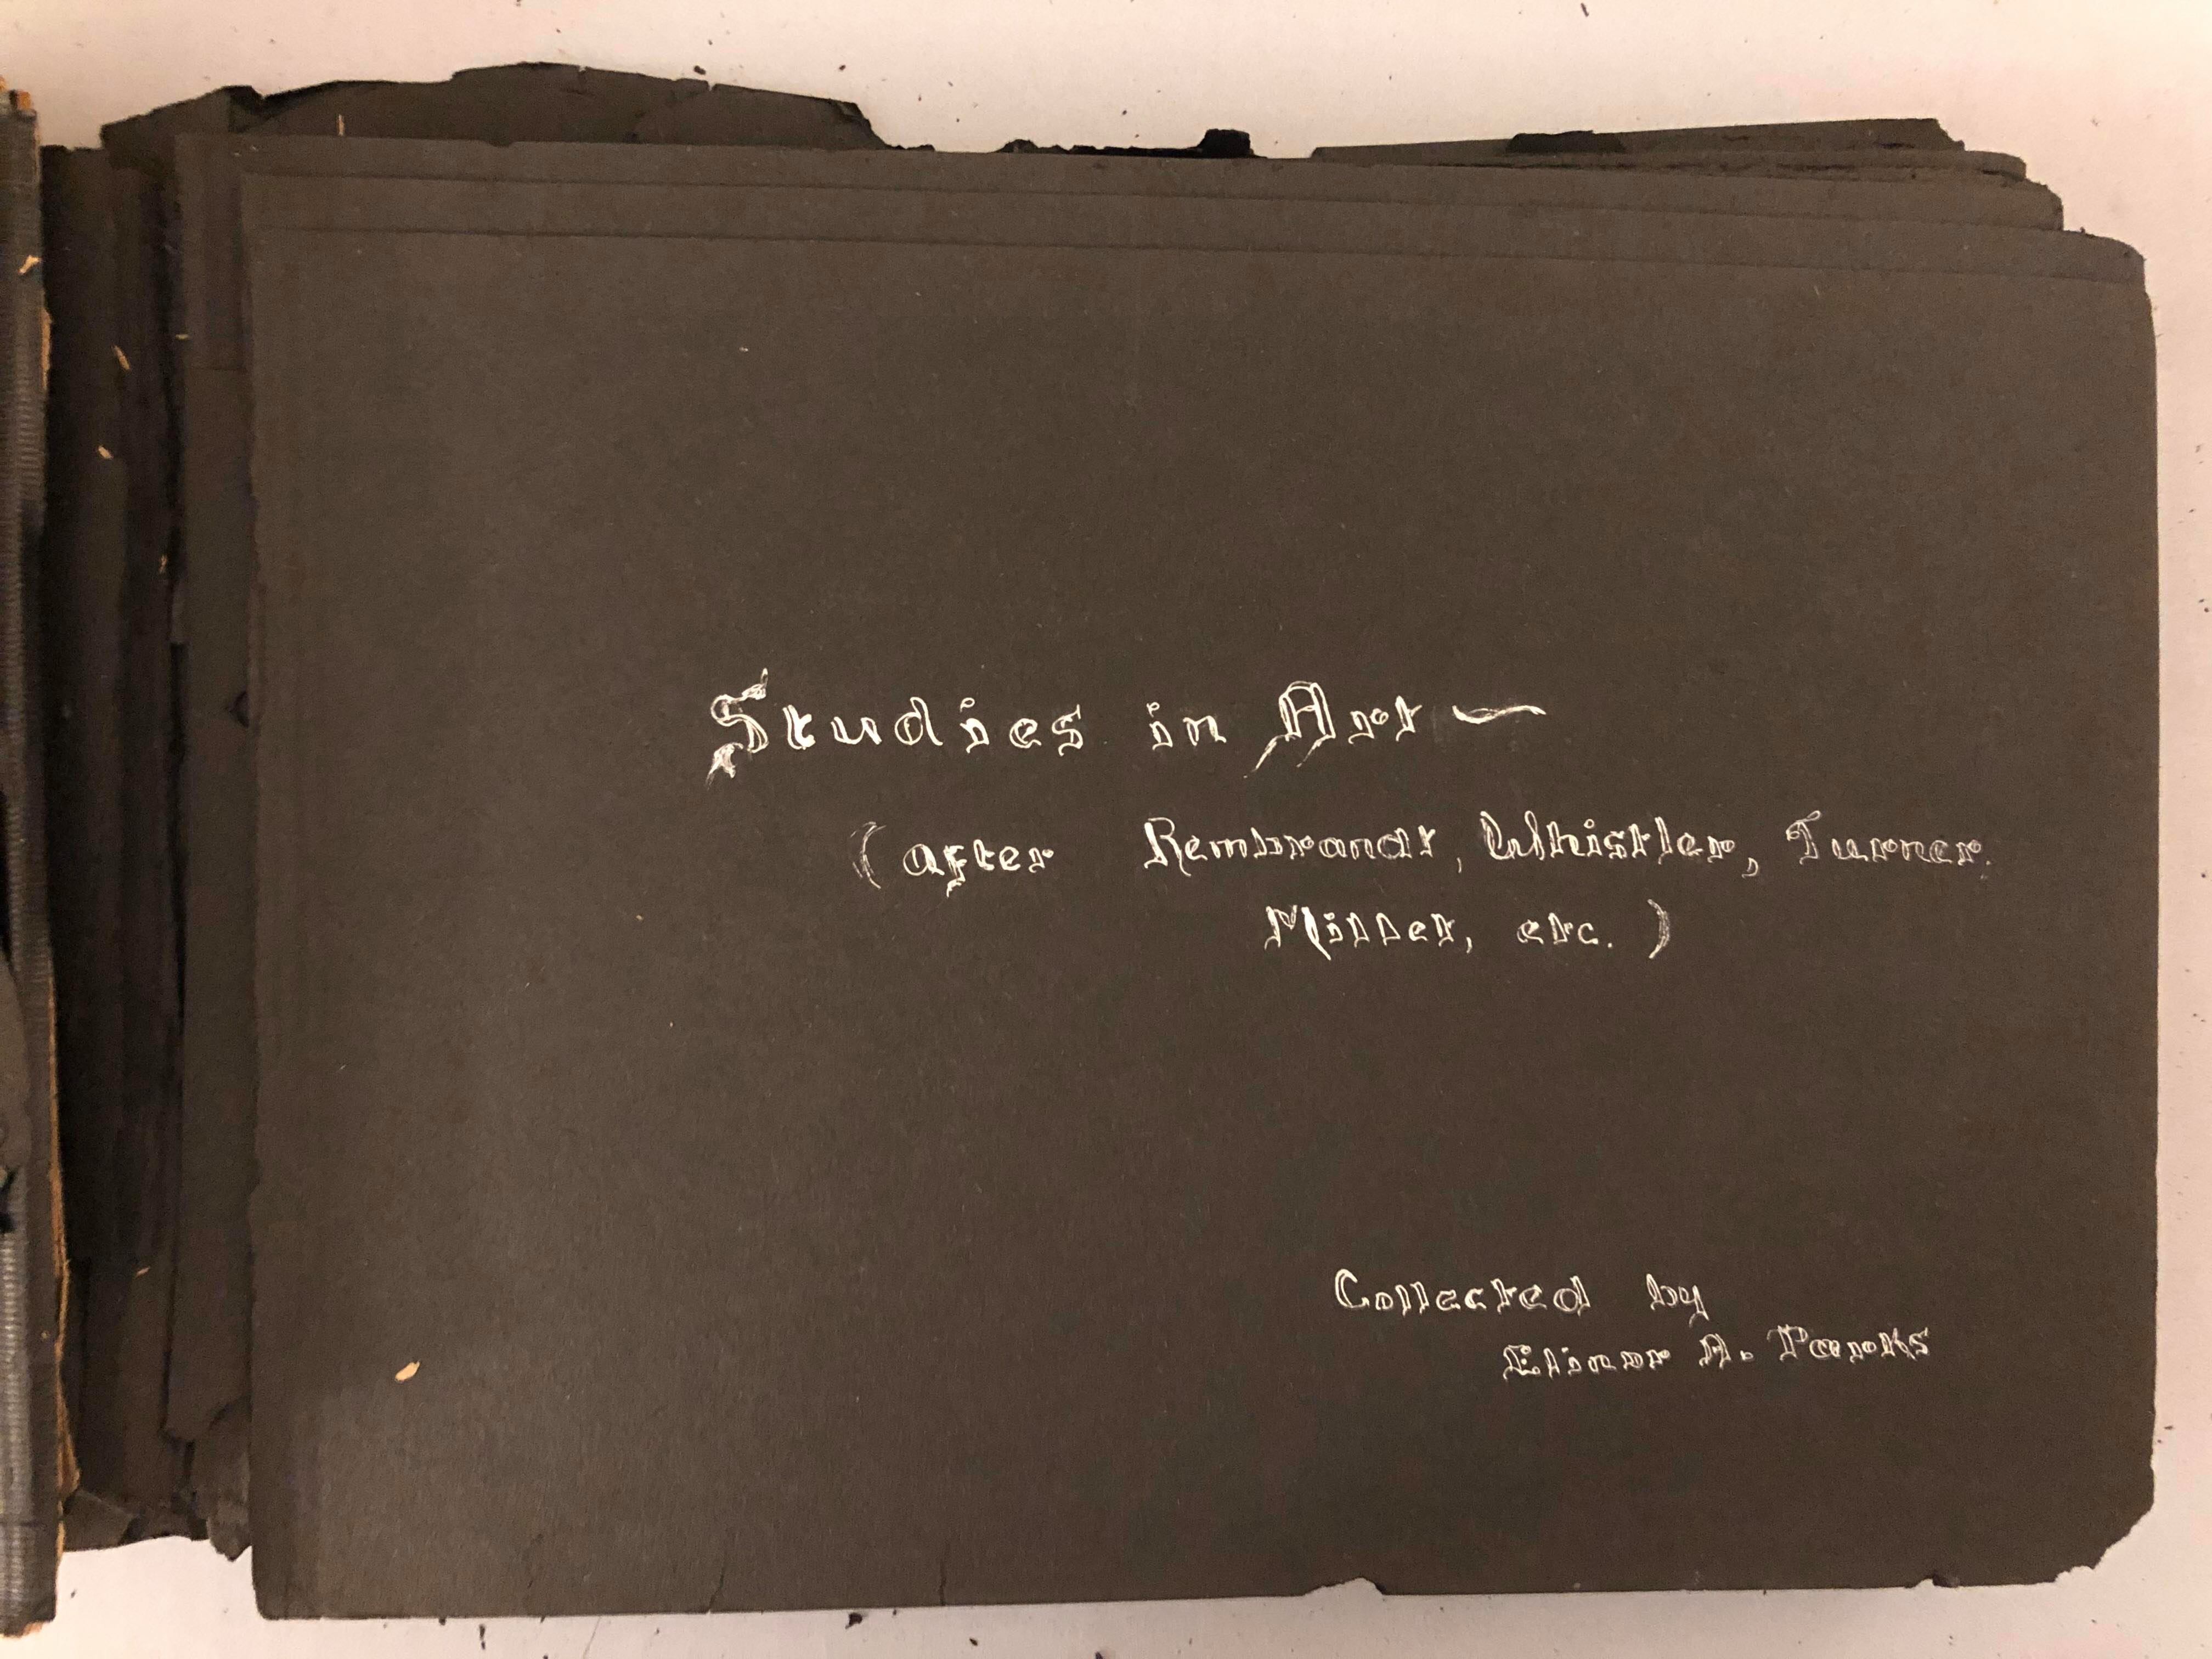 Studies in Art —
(after Rembrandt, Whistler, Turner,
Millet, etc. )
Collected by
Elinor A. Parks